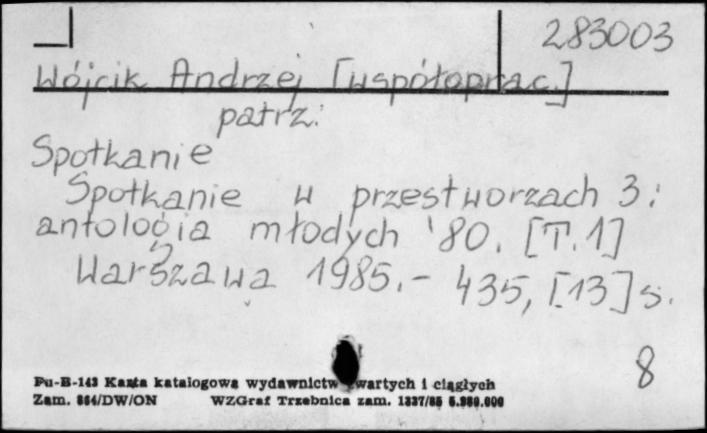 283003
Wójcik Andrzej [współoprac.]
patrz:
Spotkanie
Spotkanie w przestworzach 3:
antologia młodych '80. [T.1]
Warszawa 1985.- 435, [13] s.
8
Pu-B-143 Karta katalogowa wydawnictw zwartych i ciągłych
Zam. 864/DW/ON WZGraf Trzebnica zam. 1337/85